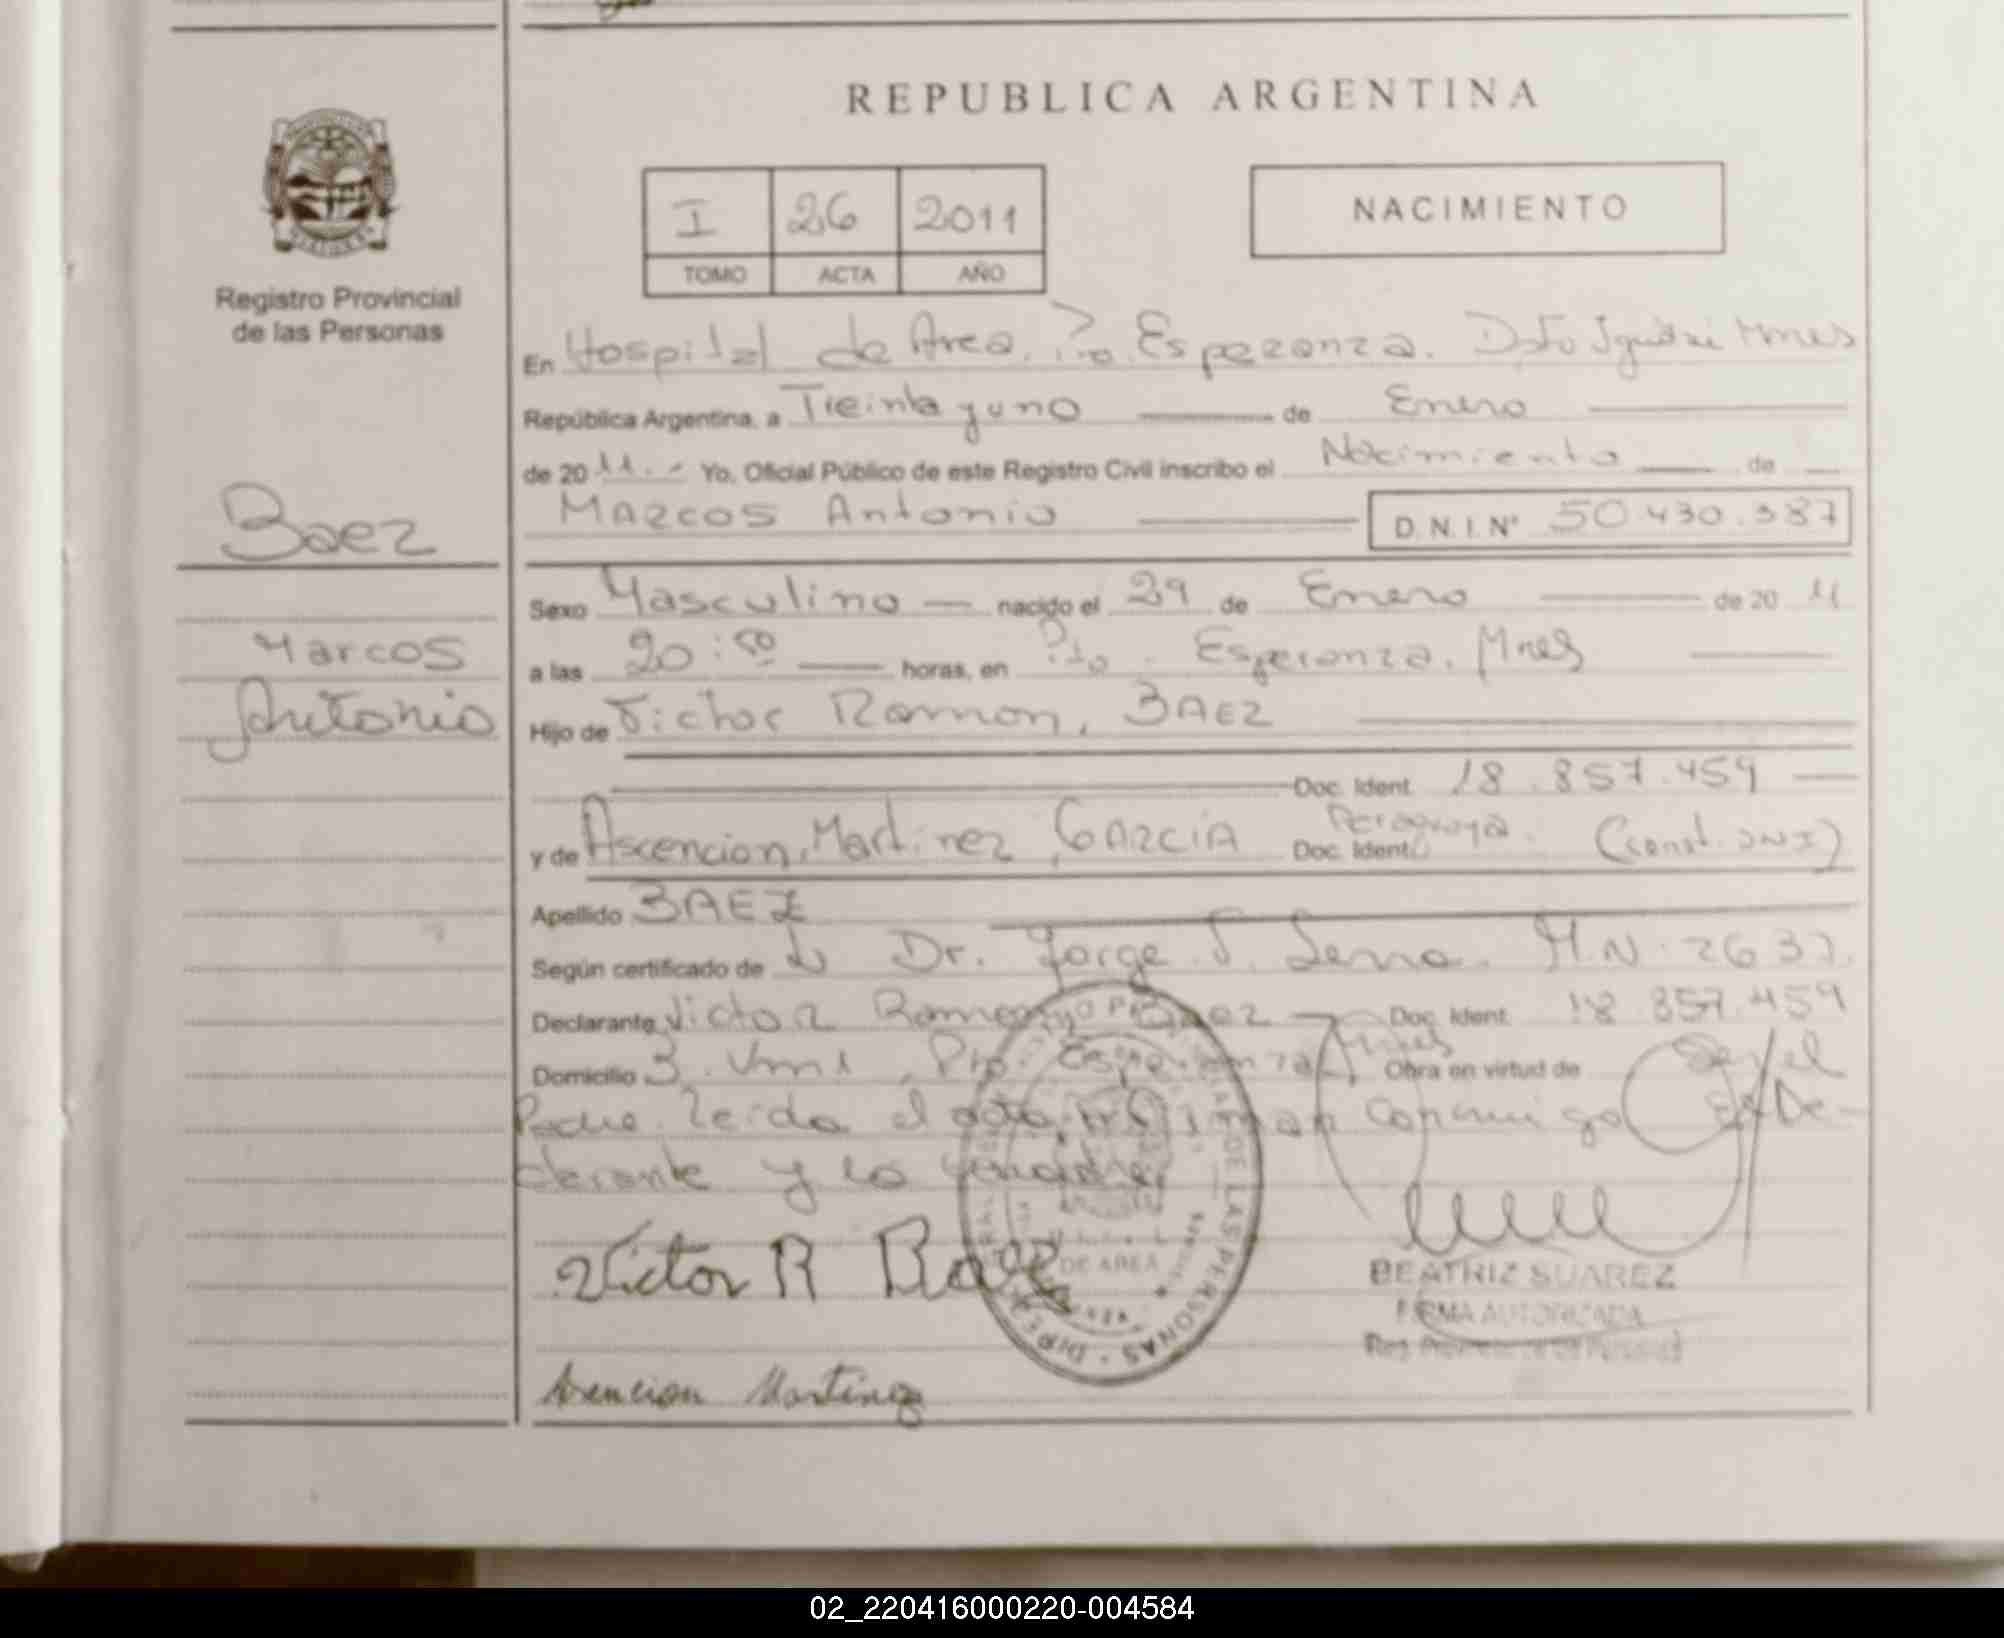 REPUBLICA ARGENTINA
I 26 2011
TOMO ACTA AÑO
NACIMIENTO
Registro Provincial
de las Personas
Baez
Marcos
Antonio
En Hospital de Area. Pto. Esperanza. Dpto Iguazú Mnes
República Argentina, a Treinta y uno de Enero
de 20 11.- Yo, Oficial Público de este Registro Civil inscribo el Nacimiento de
Marcos Antonio D.N.I.Nº 50.430.387
Sexo Masculino nacido el 29 de Enero de 20 11
a las 20:50 horas, en Pto. Esperanza. Mnes
Hijo de Victor Ramon, BAEZ
Doc. Ident. 18.857.459
y de Ascencion, Martinez GARCIA Doc. Ident. Paraguaya.
Apellido BAEZ
Según certificado de Dr. Jorge M.N. 2637.
Declarante Victor Ramon Baez Doc. Ident. 18.857.459
Domicilio Pto. Esperanza, Mnes Obra en virtud de Ser el
Padre. Leida el acta firman conmigo el De-
clarante y la
DE LAS PERSONAS
DE AREA
Victor R Baez
BEATRIZ SUAREZ
FIRMA AUTORIZADA
Reg. Provincial de las Personas
Asencion Martinez
02_220416000220-004584